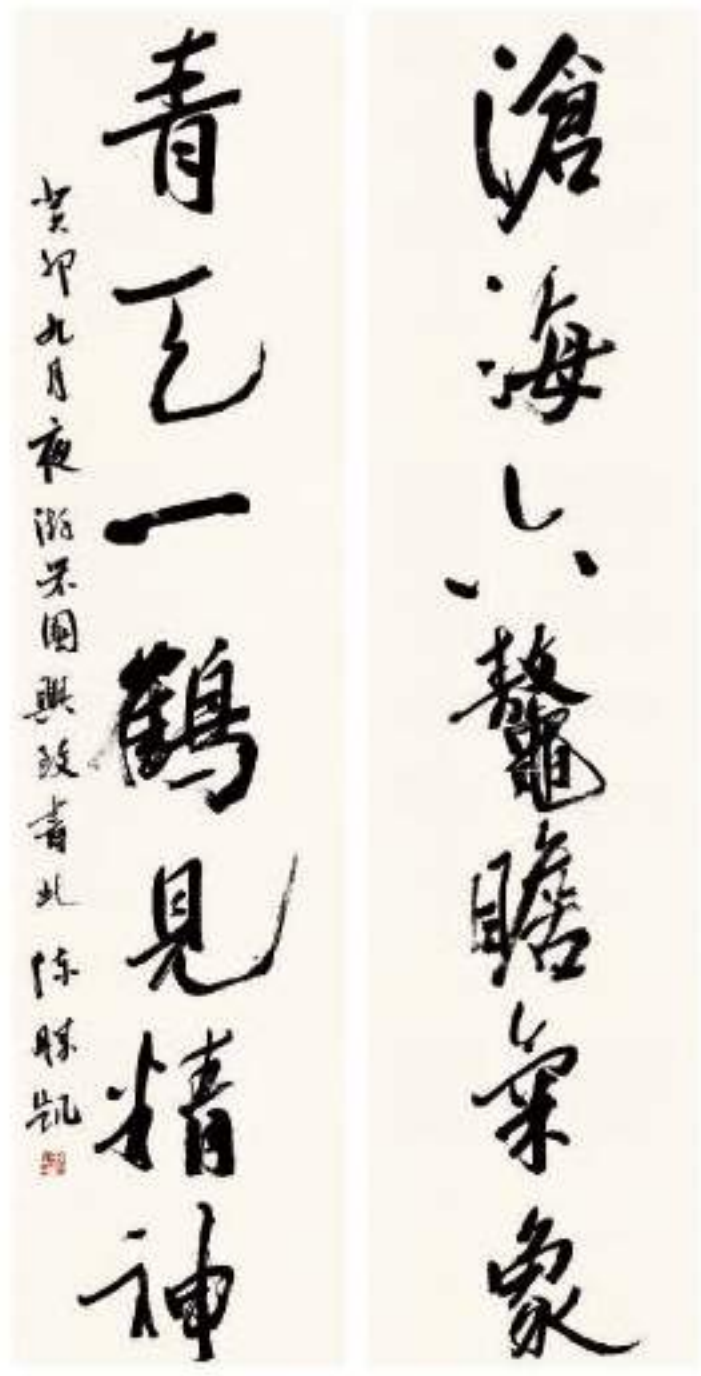 滄海六鼇瞻氣象
青天一鶴見精神
癸卯九月夜游某園興致書此 陈勝凯